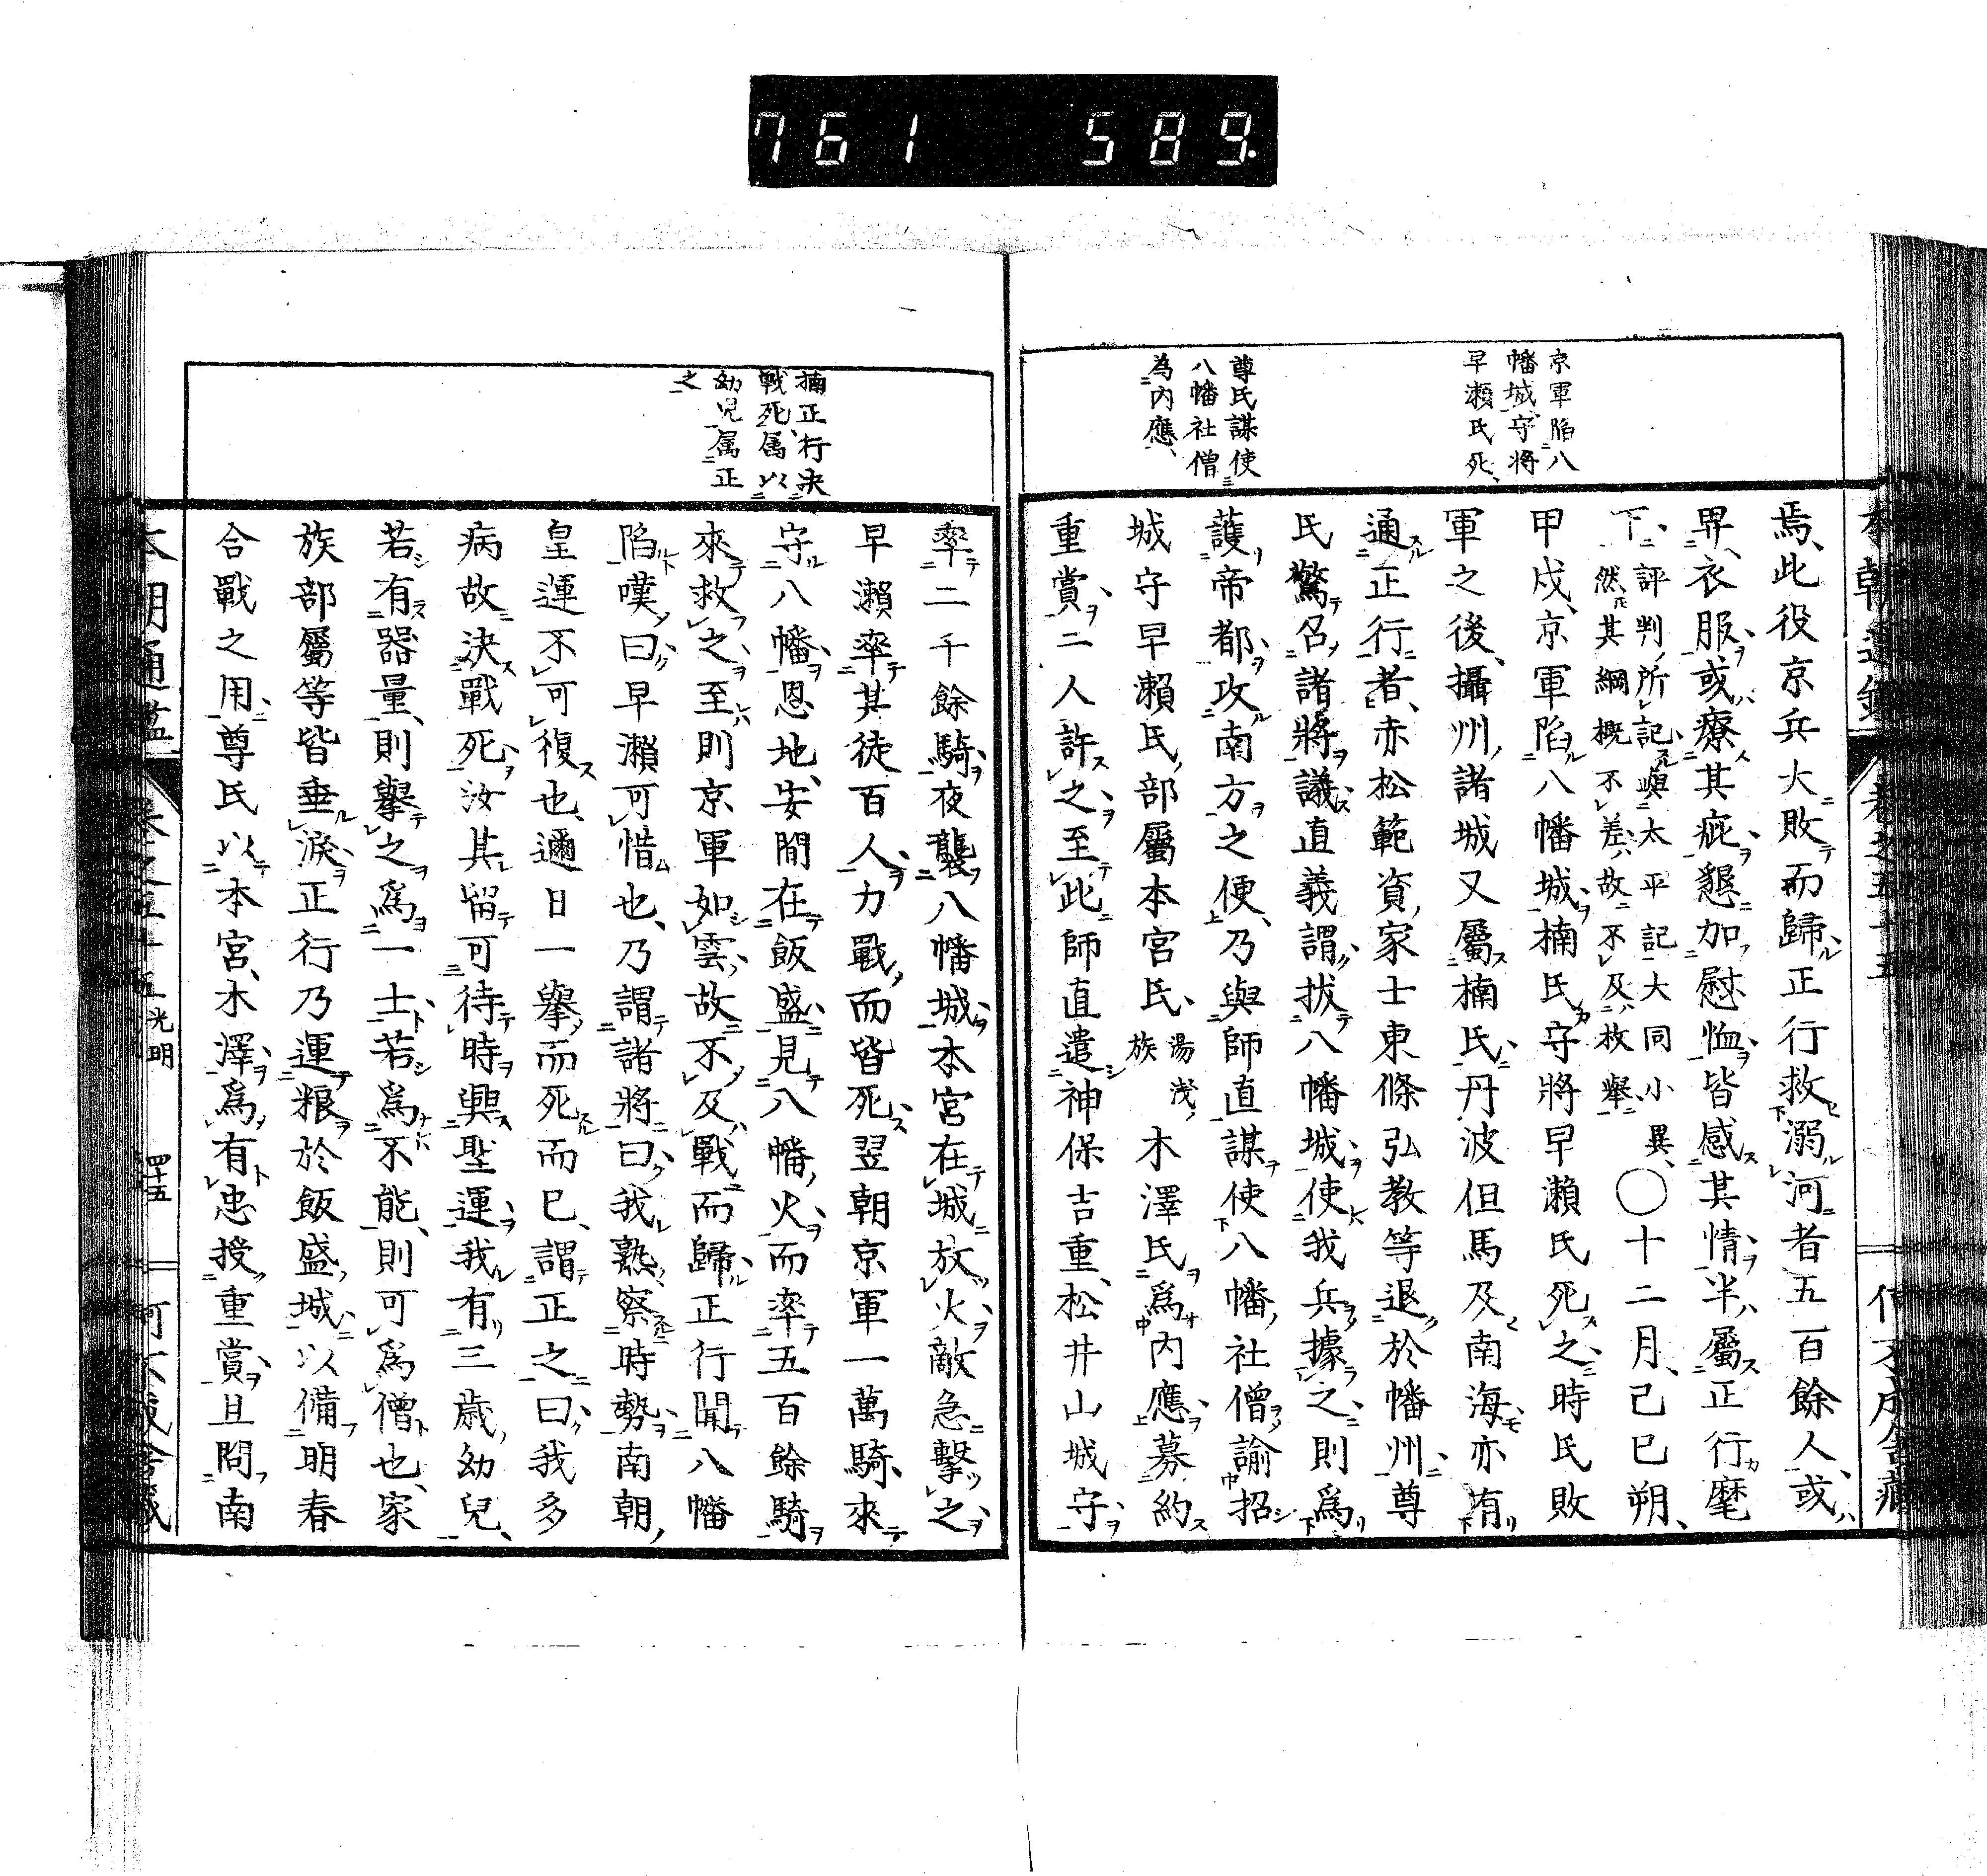 761 589.
京軍陷八
幡城守將
早瀬氏死、
尊氏謀使
八幡社僧
為内應、
焉、此役京兵大敗而歸、正行救溺河者五百餘人、或
畀衣服、或療其疵、懇加慰恤、皆感其情、半屬正行麾
下、評判所記與太平記大同小異、
然其綱概不差、故不及枚舉、○十二月、己巳朔、
甲戌、京軍陷八幡城、楠氏守將早瀬氏死之、時氏敗
軍之後、攝州諸城又屬楠氏、丹波但馬及南海亦有
通正行者、赤松範資家士東條弘教等退於幡州、尊
氏驚召諸將議、直義謂拔八幡城、使我兵據之、則為
護帝都攻南方之便、乃與師直謀使八幡社僧諭招
城守早瀬氏部屬本宮氏、湯淺
族木澤氏為内應、募約
重賞、二人許之、至此師直遣神保吉重、松井山城守、
楠正行決
戰死、爲以
幼児属正
之
率二千餘騎、夜襲八幡城、本宮在城放火、敵急擊之、
早瀬率其徒百人力戰、而皆死、翌朝京軍一萬騎、來
守八幡、恩地、安間在飯盛、見八幡火、而率五百餘騎
來救之、至則京軍如雲、故不及戰而歸、正行聞八幡
陷嘆曰、早瀬可惜也、乃謂諸將曰、我熟察時勢、南朝
皇運不可復也、邇日一擧而死而已、謂正之曰、我多
病故決戰死、汝其留可待時興聖運、我有三歳幼兒、
若有器量、則擧之為一士、若為不能、則可為僧也、家
族部屬等皆垂淚、正行乃運粮於飯盛城、以備明春
合戰之用、尊氏以本宮、木澤為有忠、授重賞、且問南
光明
四十五